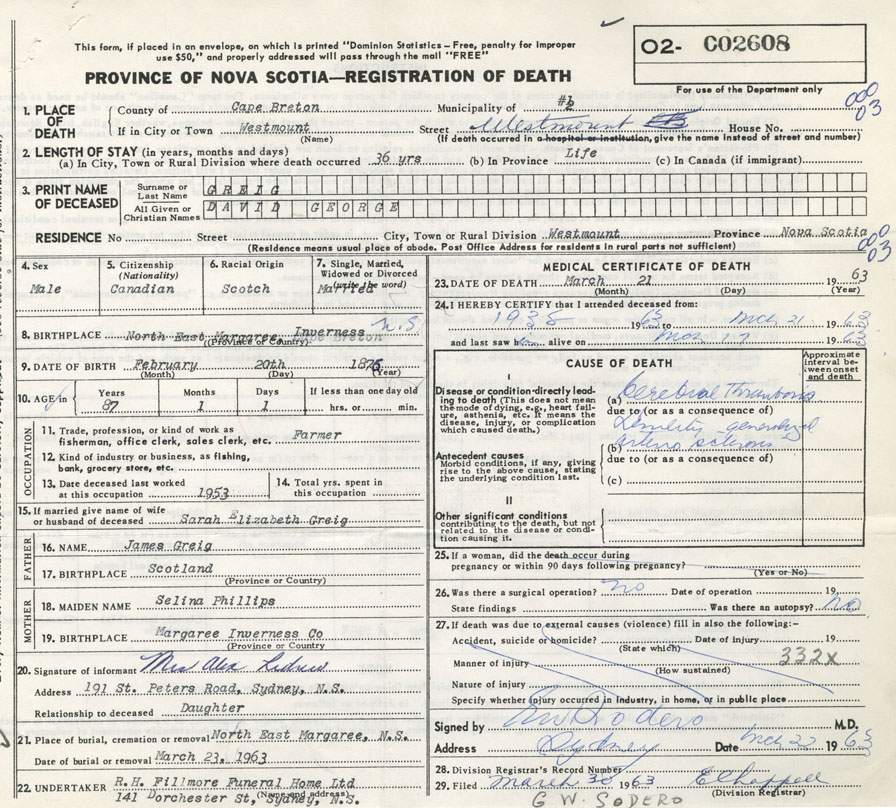 This form, if placed in an envelope, on which is printed "Dominion Statistics – Free, penalty for improper
use $50," and properly addressed will pass through the mail "FREE"
O2- C02608
PROVINCE OF NOVA SCOTIA—REGISTRATION OF DEATH
For use of the Department only
000
03
1. PLACE OF DEATH
County of Cape Breton Municipality of #b
If in City or Town Westmount Street Westmount House No.
(Name) (If death occurred in a hospital or institution, give the name instead of street and number)
2. LENGTH OF STAY (in years, months and days)
(a) In City, Town or Rural Division where death occurred 36 yrs (b) In Province Life (c) In Canada (if immigrant)
3. PRINT NAME OF DECEASED
Surname or Last Name GREIG
All Given or Christian Names DAVID GEORGE
RESIDENCE No Street City, Town or Rural Division Westmount Province Nova Scotia
(Residence means usual place of abode. Post Office Address for residents in rural parts not sufficient)
000
03
4. Sex Male
5. Citizenship (Nationality) Canadian
6. Racial Origin Scotch
7. Single, Married, Widowed or Divorced (write the word) Married
8. BIRTHPLACE North East Margaree, Inverness N.S.
(Province or Country) Breton
9. DATE OF BIRTH February 20th 1876
(Month) (Day) (Year)
10. AGE Years 87 Months 1 Days 1 If less than one day old hrs. or min.
OCCUPATION
11. Trade, profession, or kind of work as fisherman, office clerk, sales clerk, etc. Farmer
12. Kind of industry or business, as fishing, bank, grocery store, etc.
13. Date deceased last worked at this occupation 1953
14. Total yrs. spent in this occupation
15. If married give name of wife or husband of deceased Sarah Elizabeth Greig
FATHER
16. NAME James Greig
17. BIRTHPLACE Scotland
(Province or Country)
MOTHER
18. MAIDEN NAME Selina Phillips
19. BIRTHPLACE Margaree Inverness Co
(Province or Country)
20. Signature of informant Mrs Alex
Address 191 St. Peters Road, Sydney, N.S.
Relationship to deceased Daughter
21. Place of burial, cremation or removal North East Margaree, N.S.
Date of burial or removal March 23, 1963
22. UNDERTAKER R.H. Fillmore Funeral Home Ltd
(Name and address)
141 Dorchester St, Sydney, N.S.
MEDICAL CERTIFICATE OF DEATH
23. DATE OF DEATH March 21 1963
(Month) (Day) (Year)
24. I HEREBY CERTIFY that I attended deceased from:
1938 1963 to Mch 21 1963
and last saw him alive on Mch 17 1963
CAUSE OF DEATH
Approximate interval between onset and death
I
Disease or condition directly leading to death (This does not mean the mode of dying, e.g., heart failure, asthenia, etc. It means the disease, injury, or complication which caused death.)
(a) Cerebral Thrombosis
due to (or as a consequence of)
generalized
Antecedent causes
Morbid conditions, if any, giving rise to the above cause, stating the underlying condition last.
(b) arterio sclerosis
due to (or as a consequence of)
(c)
II
Other significant conditions
contributing to the death, but not related to the disease or condition causing it.
25. If a woman, did the death occur during pregnancy or within 90 days following pregnancy?
(Yes or No)
26. Was there a surgical operation? no Date of operation 19
State findings Was there an autopsy? no
27. If death was due to external causes (violence) fill in also the following:–
Accident, suicide or homicide? Date of injury 19
(State which)
332X
Manner of injury
(How sustained)
Nature of injury
Specify whether injury occurred in industry, in home, or in public place
Signed by GW Sodero M.D.
Address Sydney Date Mch 22 1963
28. Division Registrar's Record Number
29. Filed March 30 1963 E Chappell
(Division Registrar)
G. W. SODERO